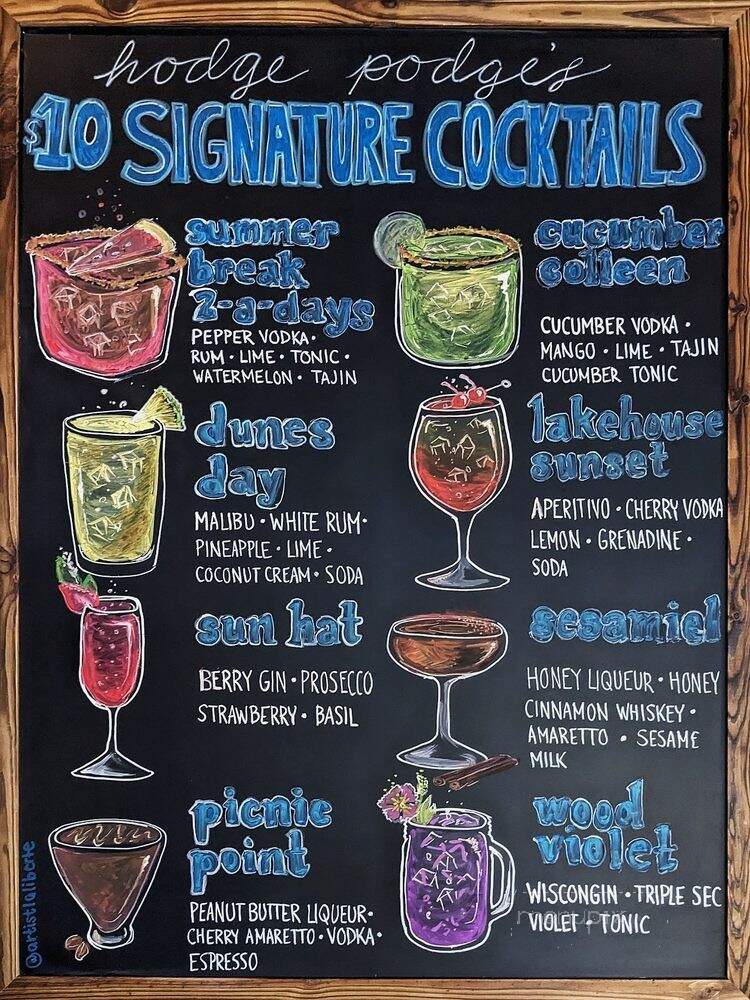 hodge podge's
$10 SIGNATURE COCKTAILS
summer
break
2-a-days
PEPPER VODKA •
RUM • LIME • TONIC •
WATERMELON • TAJIN
cucumber
colleen
CUCUMBER VODKA •
MANGO • LIME • TAJIN
CUCUMBER TONIC
dunes
day
MALIBU • WHITE RUM •
PINEAPPLE • LIME •
COCONUT CREAM • SODA
lakehouse
sunset
APERITIVO • CHERRY VODKA
LEMON • GRENADINE •
SODA
sun hat
BERRY GIN • PROSECCO
STRAWBERRY • BASIL
sesamiel
HONEY LIQUEUR • HONEY
CINNAMON WHISKEY •
AMARETTO • SESAME
MILK
picnic
point
PEANUT BUTTER LIQUEUR •
CHERRY AMARETTO • VODKA •
ESPRESSO
wood
violet
WISCONGIN • TRIPLE SEC
VIOLET • TONIC
@artistlaliberte